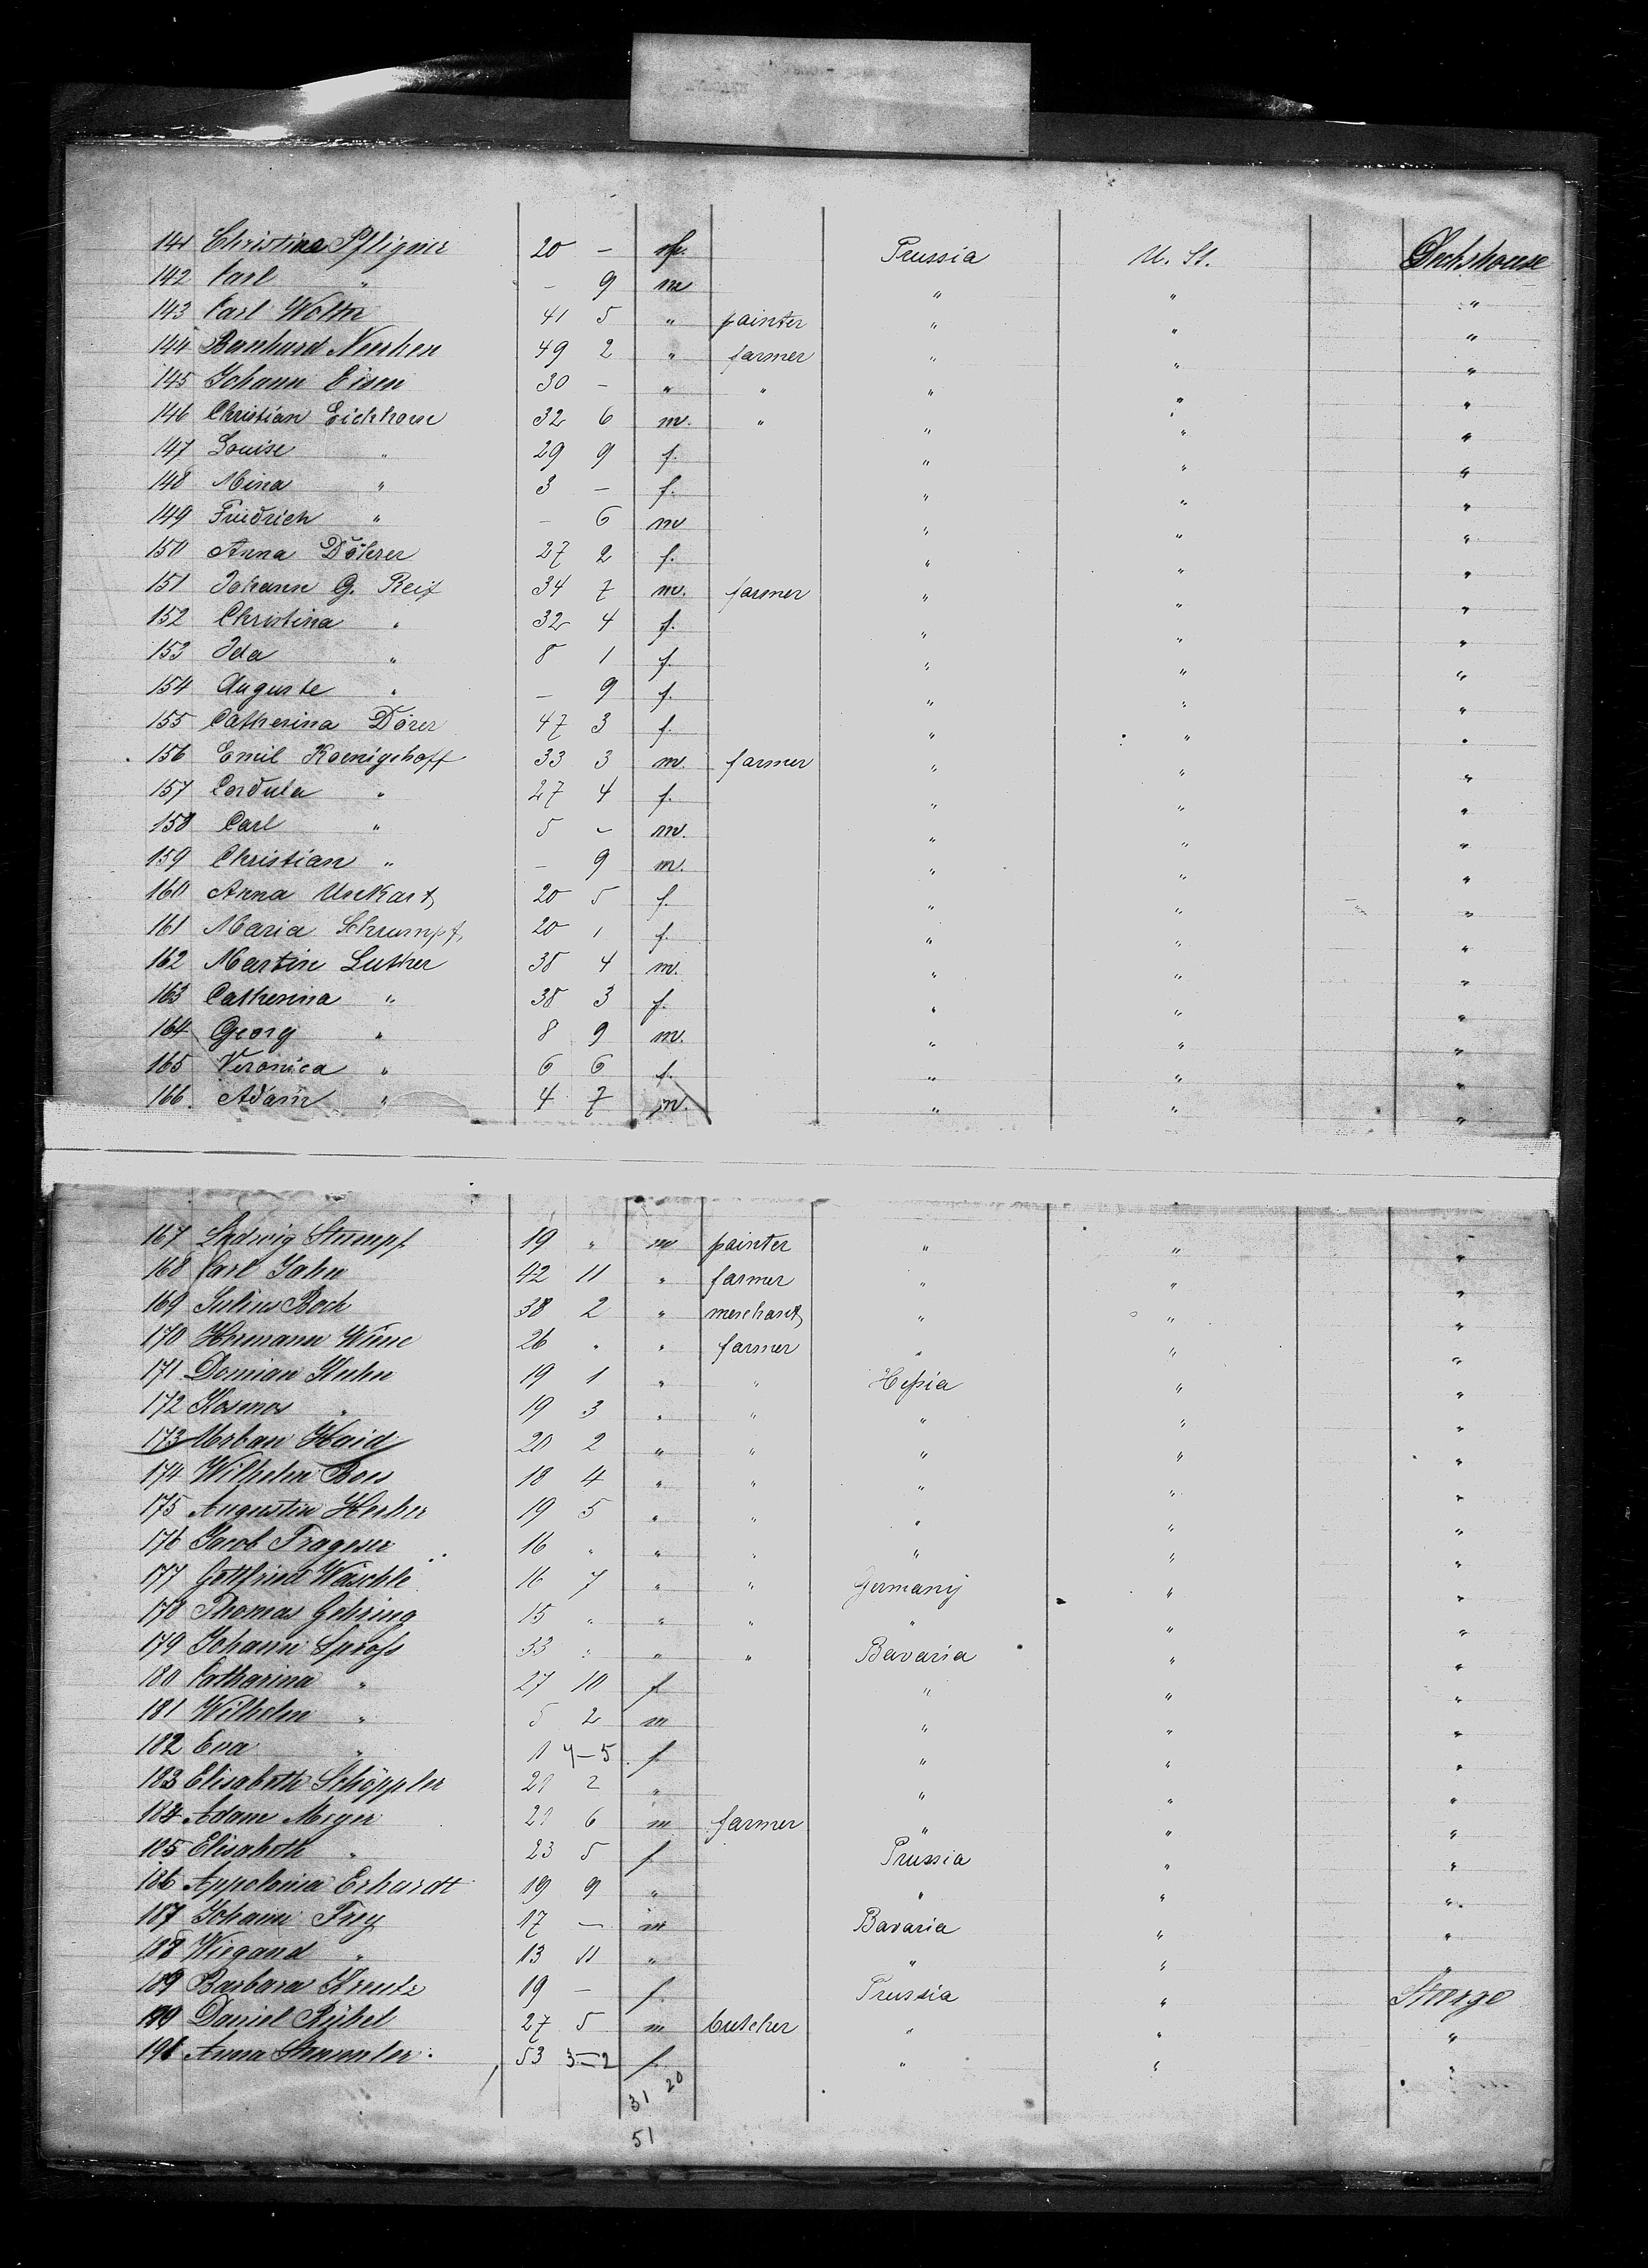 141 Christina Pfligner 20 – f. Prussia U. St. Deckshouse
142 Carl " – 9 m " " "
143 Carl Wolter 41 5 " painter " " "
144 Bernhard 49 2 " farmer " " "
145 Johann Eisen 30 – " " " " "
146 Christian Eickhorn 32 6 m. " " " "
147 Louise " 29 9 f. " " "
148 Mina " 3 – f. " " "
149 Friedrich " – 6 m " " "
150 Anna Döhrer 27 2 f. " " "
151 Johann G. Reif 34 7 m. farmer " " "
152 Christina " 32 4 f. " " "
153 Ida " 8 1 f. " " "
154 Auguste " – 9 f. " " "
155 Catherina Dörer 47 3 f. " " "
156 Emil Koenigshoff 33 3 m. farmer " " "
157 Cordula " 27 4 f. " " "
158 Carl " 5 – m. " " "
159 Christian " – 9 m. " " "
160 Anna 20 5 f. " " "
161 Maria Schrumpf 20 1 f. " " "
162 Martin Luther 38 4 m. " " "
163 Catherina " 38 3 f. " " "
164 Georg " 8 9 m. " " "
165 Veronica " 6 6 f. " " "
166. Adam " 4 7 m. " " "
167 Ludwig Stumpf 19 " m painter " " "
168 Carl Jahn 42 11 " farmer " " "
169 Julius Bock 38 2 " merchant " " "
170 Hermann Wiese 26 " " farmer " " "
171 Domian Kuhn 19 1 " " Hessia " "
172 Kosmos " 19 3 " " " " "
173 Urban Haid 20 2 " " " " "
174 Wilhelm Boes 18 4 " " " " "
175 Augustin Herber 19 5 " " " " "
176 Jacob Trageser 16 " " " " " "
177 Gottfried Wäschle 16 7 " " Germany " "
178 Thomas Gehring 15 " " " " " "
179 Johann Spross 33 " " " Bavaria " "
180 Catharina " 27 10 f " " "
181 Wilhelm " 5 2 m " " "
182 Eva " 1 7–5 f. " " "
183 Elisabeth Schöppler 21 2 " " " "
184 Adam Meyer 21 6 m farmer " " "
185 Elisabeth " 23 5 f Prussia " "
186 Appolonia Erhardt 19 9 " " " "
187 Johann Frey 17 – m Bavaria " "
188 Wiegand " 13 11 " " " "
189 Barbara Kreutz 19 – f. Prussia " Steerge
190 Daniel Rübel 27 5 m butcher " " "
191 Anna Stemmler 53 3–2 f. " " "
31 20
51